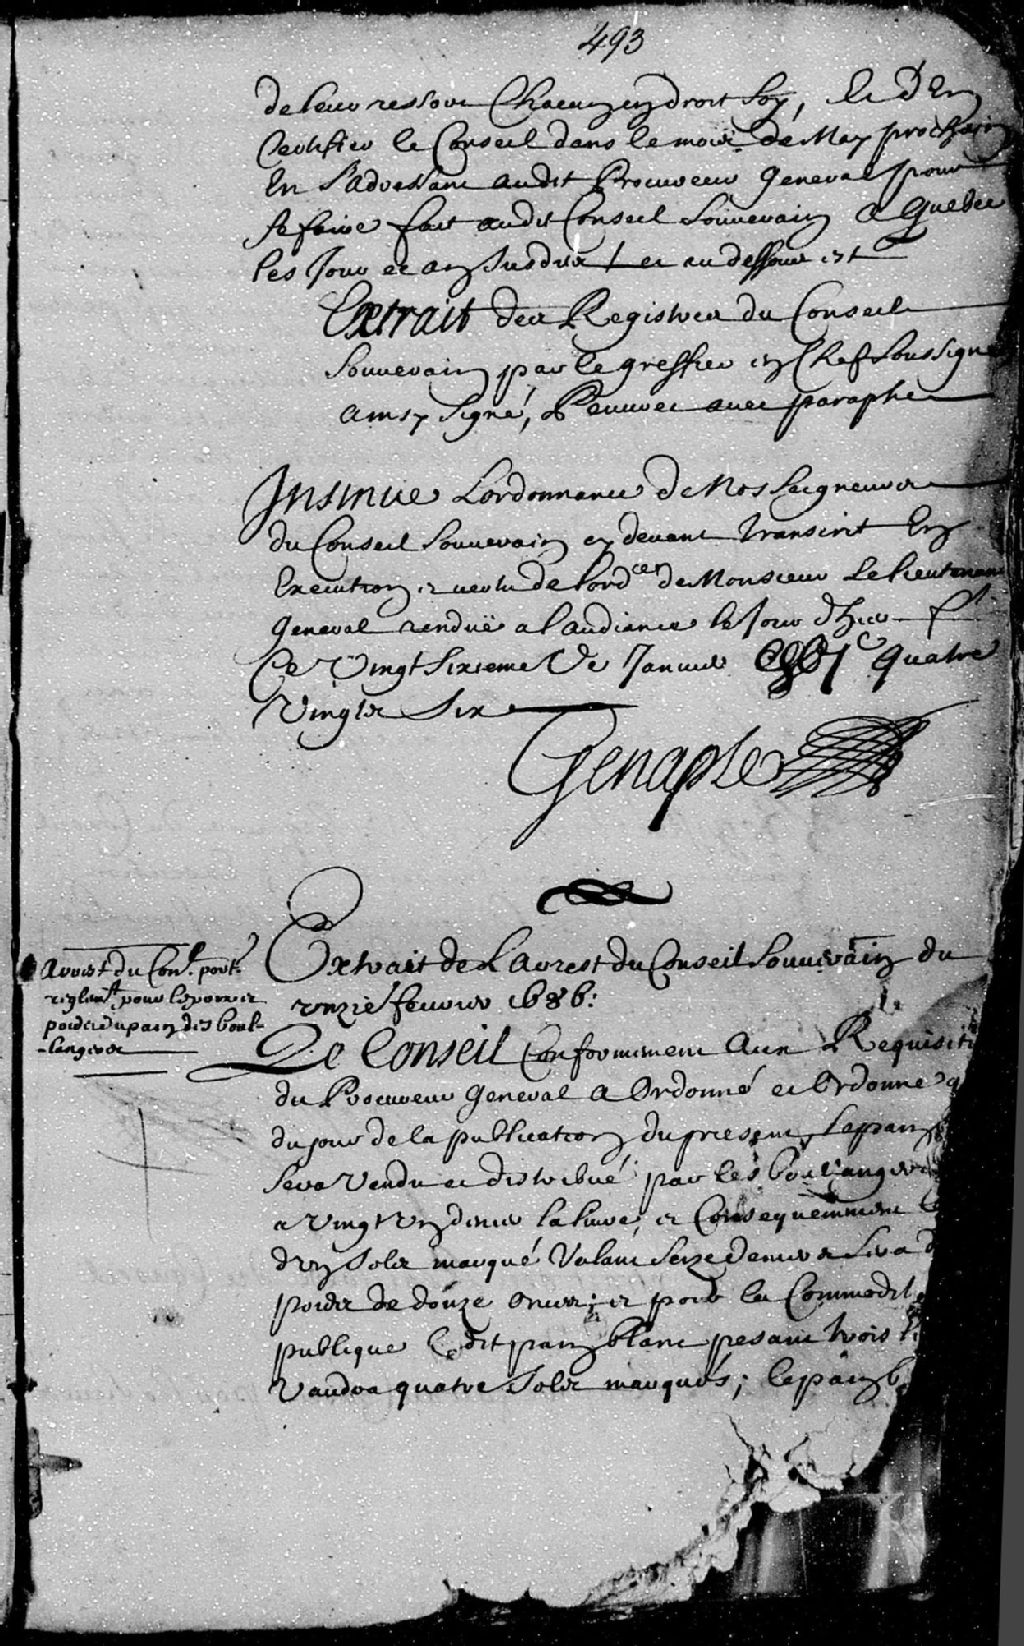 493
de leur ressort Chacun en droit soy, Et d'En
Certifier le Conseil dans le mois de May prochain
En s'adressant audit Procureur General pour
se faire fait audit Conseil Souverain a Quebec
les Jour et an Susdits et au dessous est
Extrait des Registres du Conseil
Souverain par le greffier en Chef Soussigné
ainsy Signé, Peuvret avec paraphe
Insinué L'ordonnance de Nosseigneurs
du Conseil Souverain cy devant transcrit En
Execution et vertu de l'ordce de Monsieur Le Lieutenant
General rendue a l'audiance le Jour d'hier
Ce Vingt sixieme De Janvier quatre
Vingts Six
Genaple
Arrest du Conl. port.
reglemt. pour le pour et
poids du pain des boul-
-langers
Extrait de L'arrest du Conseil Souverain du
onzie feuvrier 1686:
Le Conseil Conformement Aux Requisiti
du Procureur General a Ordonné et Ordonne q
du jour de la publication du present, le pain
sera Vendu et distribué par les boulangers
a Vingt Un denier la livre, et Consequemment
d'un Sols marqué Valant Seize deniers sera d
poids de douze onces; et pour la Commodit
publique Ledit pain blanc pesant trois li
Vaudra quatre Sols marqués; le pain b